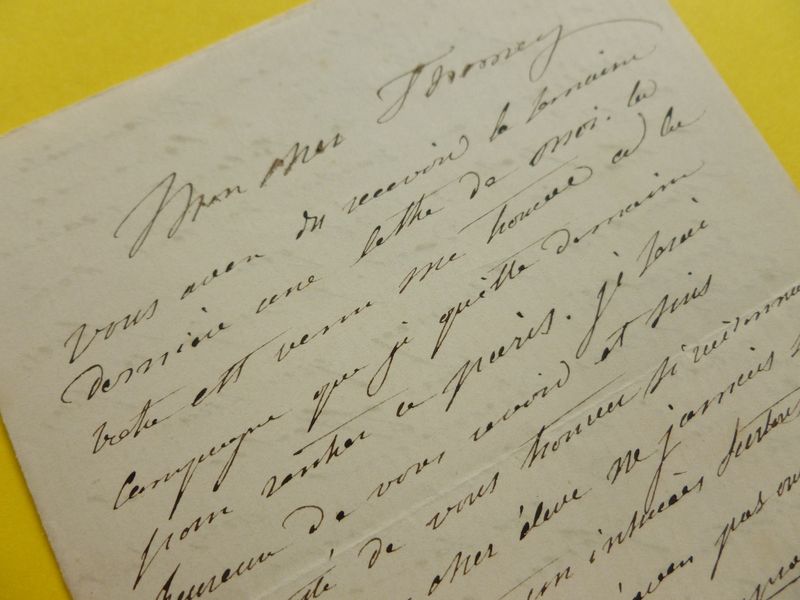 Mon cher Thomey
vous avez du recevoir la semaine
dernière une lettre de moi. la
votre est venue me trouver a la
campagne que je quitte demain
pour rentrer a paris. je serai
heureux de vous revoir et suis
de vous trouver si
cher élève ne jamais
un intérêts surtout
pas